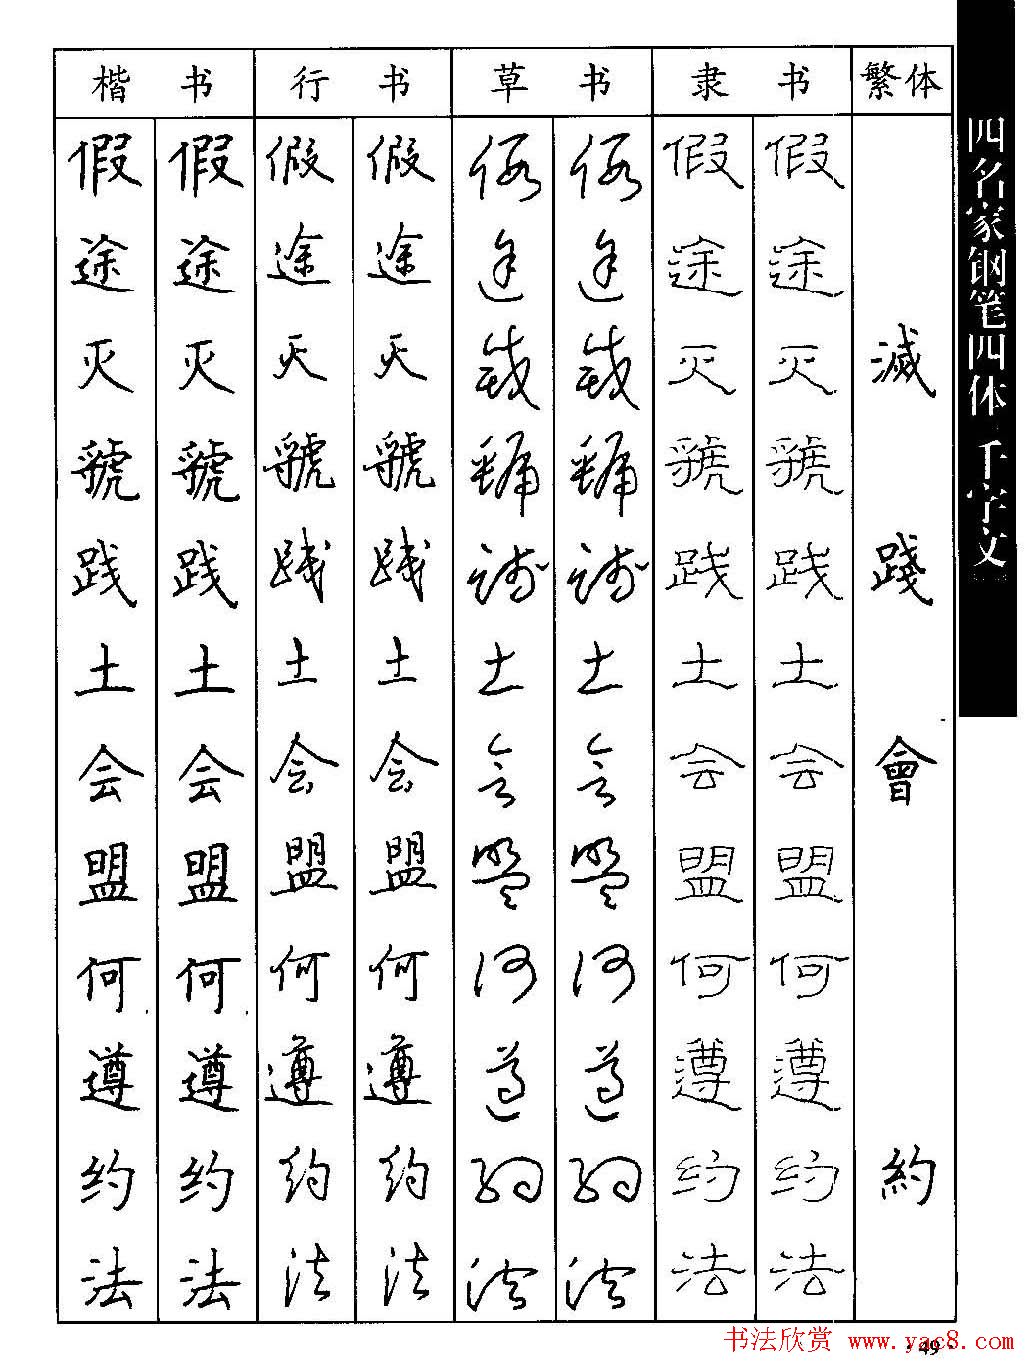 楷书 行书 草书 隶书 繁体
假 假 假 假 假 假 假 假
途 途 途 途 途 途 途 途
灭 灭 灭 灭 灭 灭 灭 灭 滅
虢 虢 虢 虢 虢 虢 虢 虢
践 践 践 践 践 践 践 践 踐
土 土 土 土 土 土 土 土
会 会 会 会 会 会 会 会 會
盟 盟 盟 盟 盟 盟 盟 盟
何 何 何 何 何 何 何 何
遵 遵 遵 遵 遵 遵 遵 遵
约 约 约 约 约 约 约 约 約
法 法 法 法 法 法 法 法
四名家钢笔四体千字文
书法欣赏 www.yac8.com
·49·